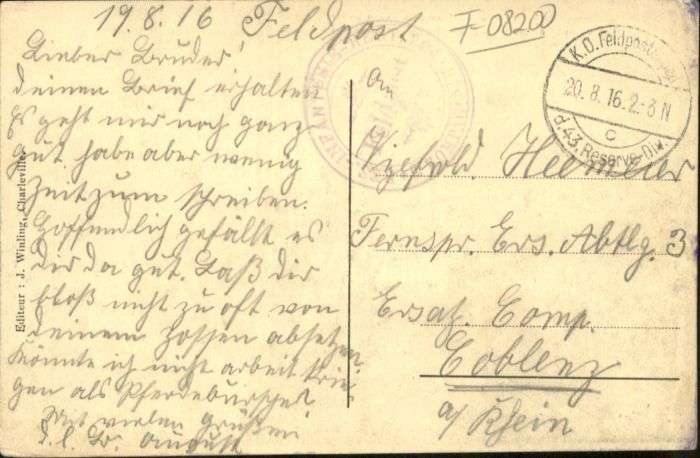 19.8.16 Feldpost
F-08200
Lieber Bruder!
deinen Brief erhalten
Es geht mir noch ganz
gut, habe aber wenig
Zeit zum schreiben.
Hoffendlich gefällt es
Dir da gut. Laß dir
bloß nicht zu oft von
deinem Zossen absetzen.
Könnte ich nicht arbeit krie-
gen als Pferdebursche?
Mit vielen grüßen
d. l. Br. August
An
Vizefeldw.
Fernspr. Ers. Abtlg. 3
Ersatz Comp.
Coblenz
a/ Rhein
K.D. Feldpost
20.8.16.2-3N
c
d.43.Reserve-Div.
Editeur : J. Winling, Charleville.